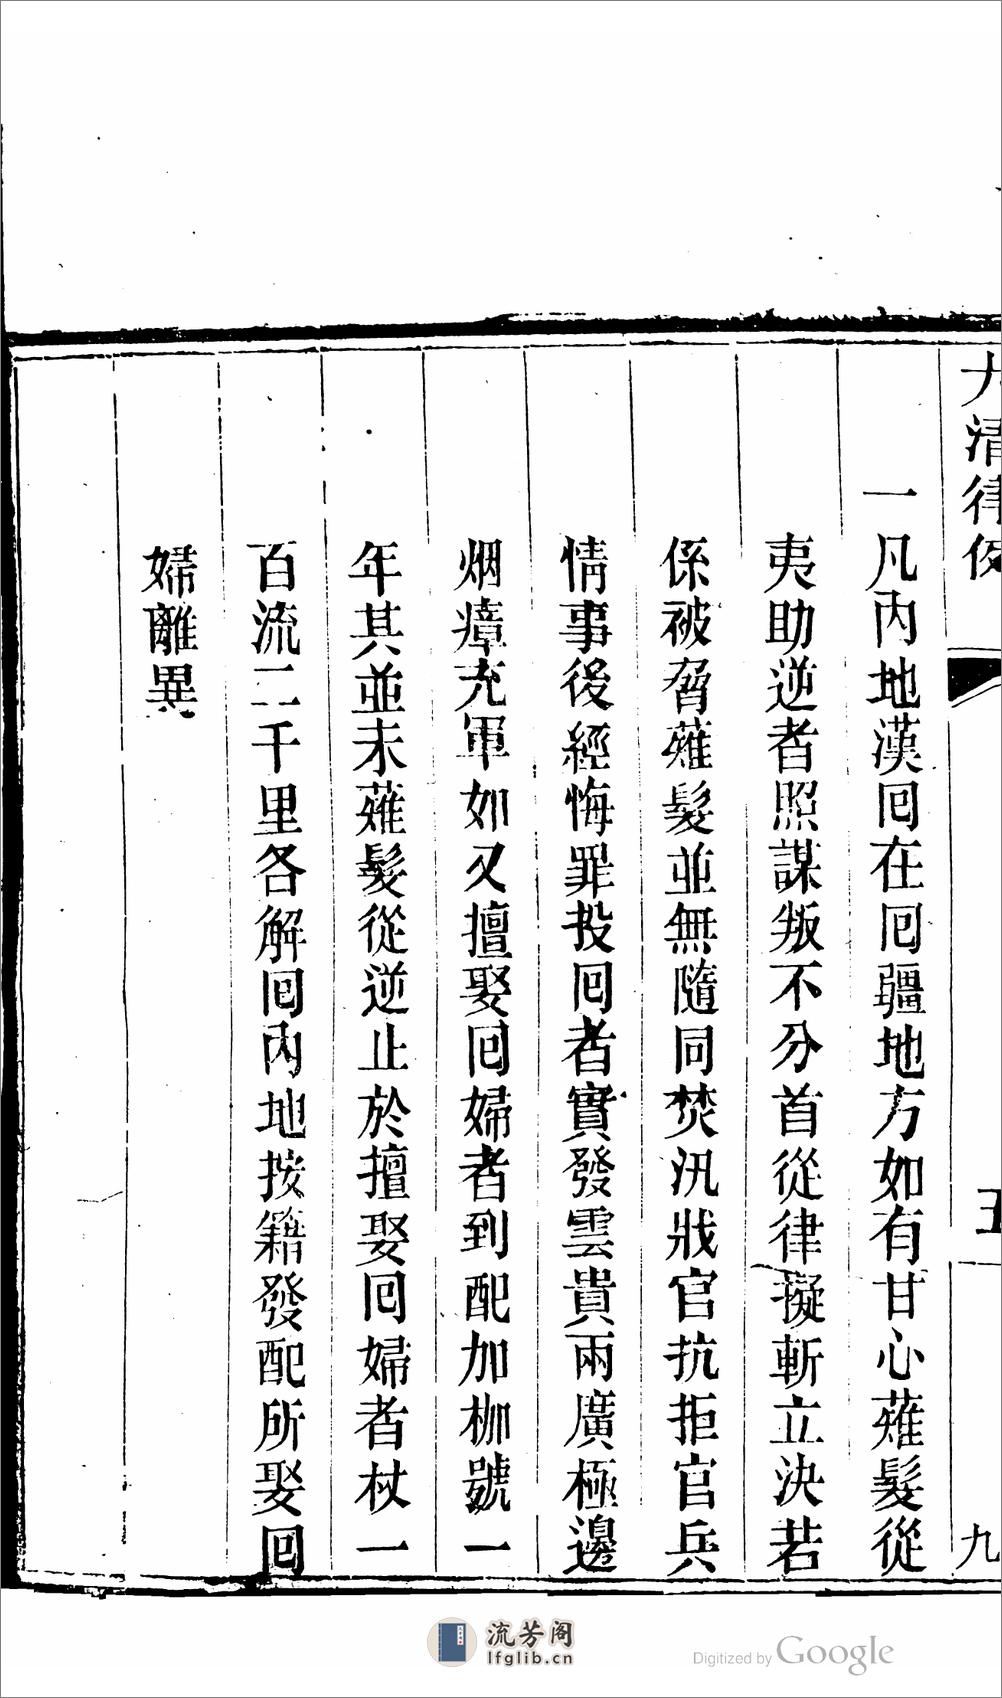 大清律例
五
九
一凡內地漢囘在囘疆地方如有甘心薙髮從
夷助逆者照謀叛不分首從律擬斬立決若
係被脅薙髮並無隨同焚汛戕官抗拒官兵
情事後經悔罪投囘者實發雲貴兩廣極邊
烟瘴充軍如又擅娶囘婦者到配加枷號一
年其並未薙髮從逆止於擅娶囘婦者杖一
百流二千里各解囘內地按籍發配所娶囘
婦離異
流芳阁
lfglib.cn
Digitized by Google